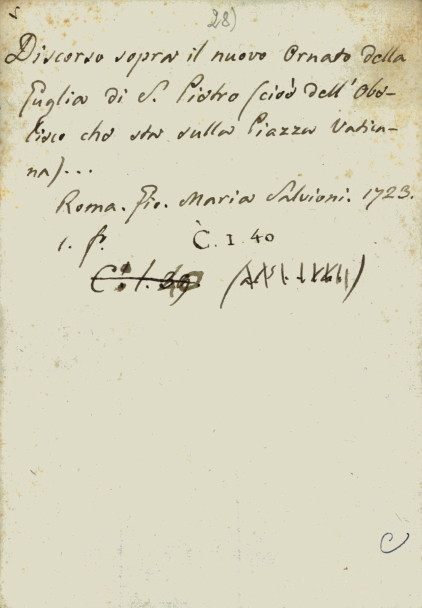 28)
Discorso sopra il nuovo Ornato della
Guglia di S. Pietro (cioè dell'Obe-
lisco che sta sulla Piazza Vatica-
na)...
Roma. Gio. Maria Salvioni. 1723.
1. f.
C. 1. 40